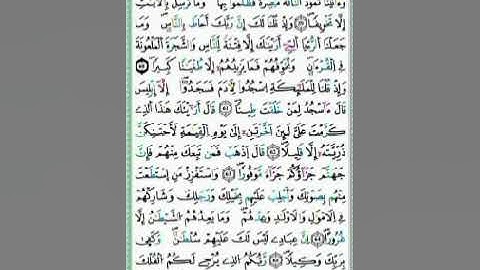 وَءَاتَيْنَا ثَمُودَ اَ۬لنَّاقَةَ مُبْصِرَةٗ فَظَلَمُواْ بِهَا وَمَا نُرْسِلُ بِالَايَٰتِ
إِلَّا تَخْوِيفاٗ وَإِذْ قُلْنَا لَكَ إِنَّ رَبَّكَ أَحَاطَ بِالنَّاسِ وَمَا
جَعَلْنَا اَ۬لرُّءْيَا اَ۬لتِےٓ أَرَيْنَٰكَ إِلَّا فِتْنَةٗ لِّلنَّاسِ وَالشَّجَرَةَ اَ۬لْمَلْعُونَةَ
فِے اِ۬لْقُرْءَانِ وَنُخَوِّفُهُمْ فَمَا يَزِيدُهُمْ إِلَّا طُغْيَٰناٗ كَبِيراٗ
وَإِذْ قُلْنَا لِلْمَلَٰٓئِكَةِ اِ۟سْجُدُواْ لِأٓدَمَ فَسَجَدُوٓاْ إِلَّآ إِبْلِيسَ
قَالَ ءَآسْجُدُ لِمَنْ خَلَقْتَ طِيناٗ قَالَ أَرَٰٓيْتَكَ هَٰذَا اَ۬لذِے
كَرَّمْتَ عَلَيَّ لَئِنَ اَخَّرْتَنِۦٓ إِلَىٰ يَوْمِ اِ۬لْقِيَٰمَةِ لَأَحْتَنِكَنَّ
ذُرِّيَّتَهُۥٓ إِلَّا قَلِيلاٗ قَالَ اَ۪ذْهَبْ فَمَن تَبِعَكَ مِنْهُمْ فَإِنَّ
جَهَنَّمَ جَزَآؤُكُمْ جَزَآءٗ مَّوْفُوراٗ وَاسْتَفْزِزْ مَنِ اِ۪سْتَطَعْتَ
مِنْهُم بِصَوْتِكَ وَأَجْلِبْ عَلَيْهِم بِخَيْلِكَ وَرَجْلِكَ وَشَارِكْهُمْ
فِے اِ۬لَامْوَٰلِ وَالَاوْلَٰدِ وَعِدْهُمْ وَمَا يَعِدُهُمُ اُ۬لشَّيْطَٰنُ إِلَّا
غُرُوراً اِنَّ عِبَادِے لَيْسَ لَكَ عَلَيْهِمْ سُلْطَٰنٞ وَكَفَىٰ
بِرَبِّكَ وَكِيلاٗ رَّبُّكُمُ اُ۬لذِے يُزْجِے لَكُمُ اُ۬لْفُلْكَ